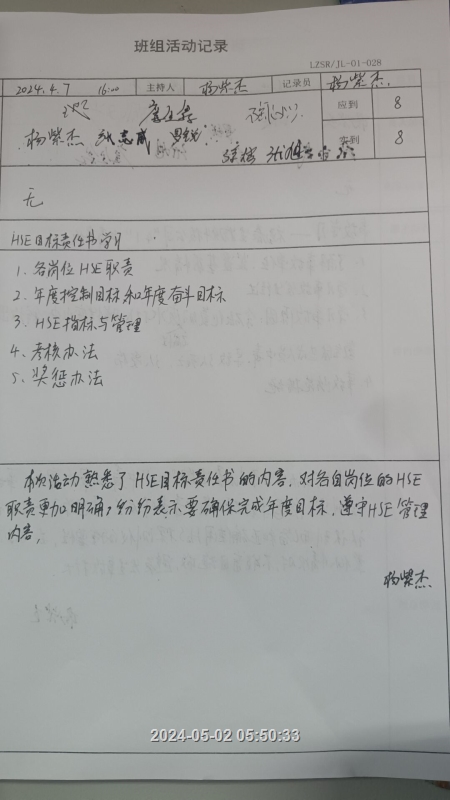 班组活动记录
LZSR/JL-01-028
2024.4.7 16:00 主持人 杨紫杰 记录员 杨紫杰
应到 8
杨紫杰 张志威
实到 8
无
HSE目标责任书学习
1、各岗位HSE职责
2、年度控制目标和年度奋斗目标
3、HSE指标与管理
4、考核办法
5、奖惩办法
本次活动熟悉了HSE目标责任书的内容，对各自岗位的HSE
职责更加明确，纷纷表示要确保完成年度目标，遵守HSE管理
内容，
杨紫杰
2024-05-02 05:50:33